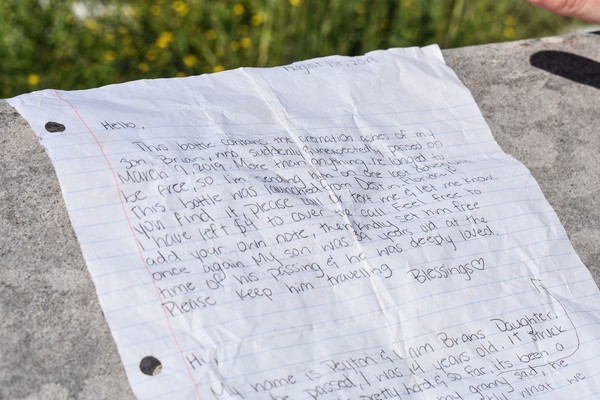 August 15, 2019
Hello,
This bottle contains the cremation ashes of my
son, Brian, who suddenly & unexpectedly passed on
March 9, 2019. More than anything, he longed to
be free, so I'm sending him on one last adventure.
This bottle was launched from Destin, Florida. If
you find it, please call or text me & let me know.
I have left $ to cover the call. Feel free to
add your own note, then kindly set him free
once again. My son was 39 years old at the
time of his passing & he was deeply loved.
Please keep him traveling
Blessings♡
Hi,
My name is Peyton & I am Brians Daughter.
he passed, I was 14 years old. It struck
pretty hard & so far, its been a
my granny said, he
what we